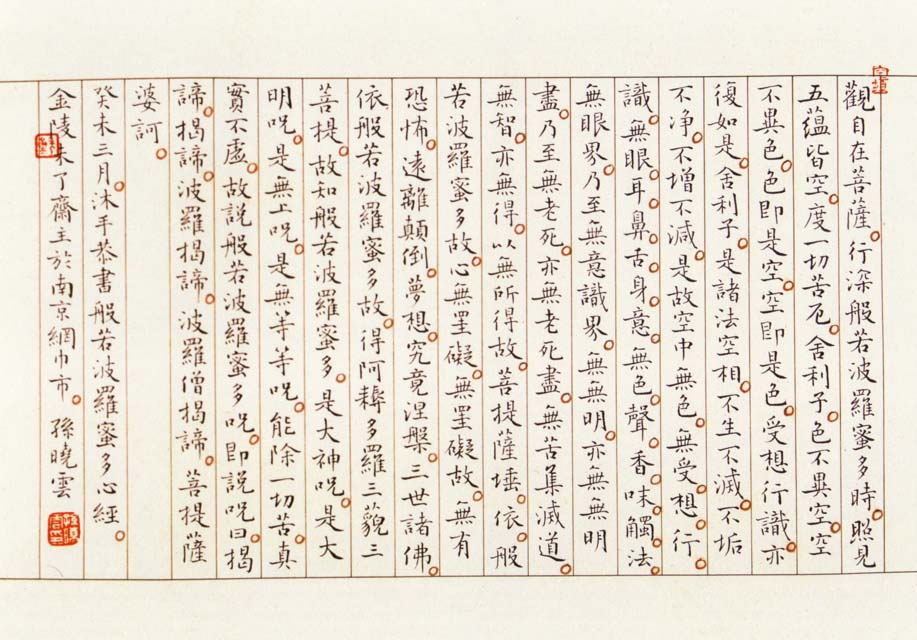 觀自在菩薩。行深般若波羅蜜多時。照見
五蘊皆空。度一切苦厄。舍利子。色不異空。空
不異色。色即是空。空即是色。受想行識。亦
復如是。舍利子。是諸法空相。不生不滅。不垢
不净。不增不減。是故空中無色。無受想。行
識。無眼。耳。鼻。舌。身。意。無色。聲。香。味。觸。法。
無眼界。乃至無意識界。無無明。亦無無明
盡。乃至無老死。亦無老死盡。無苦集滅道。
無智。亦無得。以無所得故。菩提薩埵。依般
若波羅蜜多故。心無罣礙。無罣礙故。無有
恐怖。遠離顛倒。夢想。究竟涅槃。三世諸佛。
依般若波羅蜜多故。得阿耨多羅三藐三
菩提。故知般若波羅蜜多。是大神咒。是大
明咒。是無上咒。是無等等咒。能除一切苦。真
實不虛。故説般若波羅蜜多咒。即説咒曰。揭
諦。揭諦。波羅揭諦。波羅僧揭諦。菩提薩
婆訶。
癸未三月。沐手恭書般若波羅蜜多心經。
金陵未了齋主於南京網巾市。孫曉雲